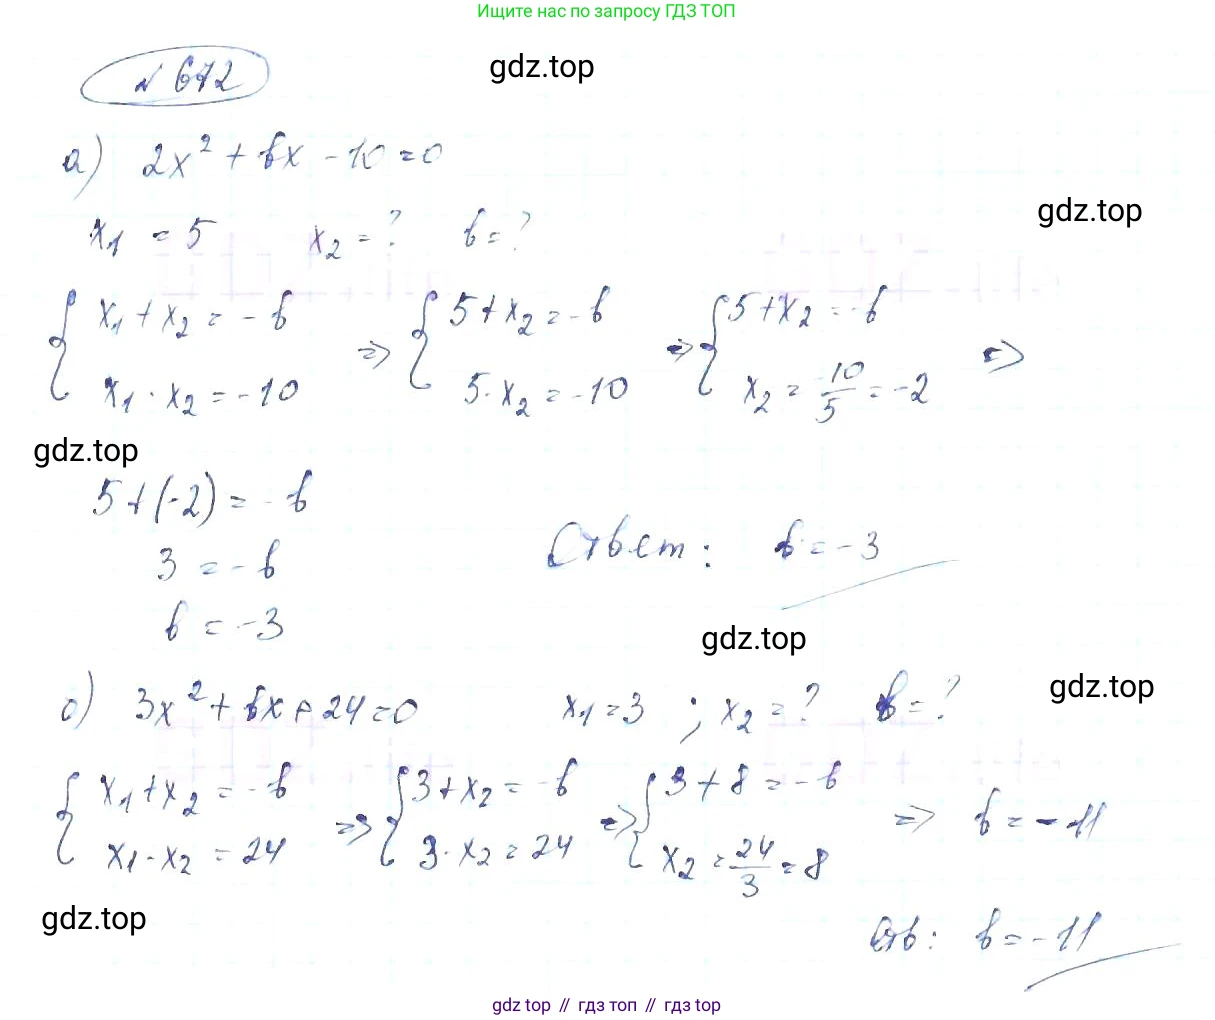 Ищите нас по запросу ГДЗ ТОП
№ 672
gdz.top
а) 2x² + bx - 10 = 0
gdz.top
x₁ = 5 x₂ = ? b = ?
{ x₁ + x₂ = -b ⇒ { 5 + x₂ = -b ⇒ { 5 + x₂ = -b ⇒
x₁ · x₂ = -10 5 · x₂ = -10 x₂ = -10/5 = -2
gdz.top
5 + (-2) = -b
3 = -b Ответ: b = -3
b = -3
gdz.top
б) 3x² + bx + 24 = 0 x₁ = 3 ; x₂ = ? b = ?
gdz.top
{ x₁ + x₂ = -b ⇒ { 3 + x₂ = -b ⇒ { 3 + 8 = -b ⇒ b = -11
x₁ · x₂ = 24 3 · x₂ = 24 x₂ = 24/3 = 8
gdz.top
Отв: b = -11
gdz top // гдз топ // gdz top